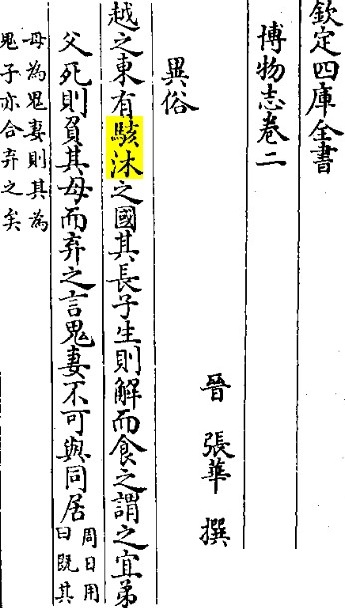 欽定四庫全書
博物志卷二
晉 張華 撰
異俗
越之東有駭沐之國其長子生則解而食之謂之宜弟
父死則負其母而弃之言鬼妻不可與同居周日用曰既其
母為鬼妻則其為鬼子亦合弃之矣